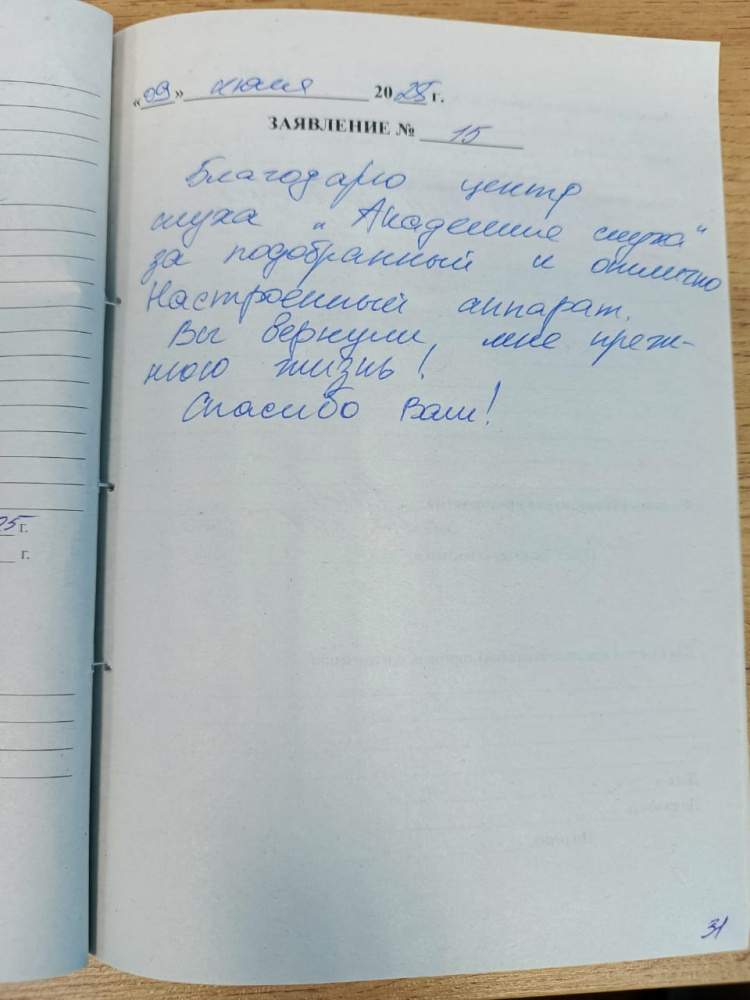 «09» июля 2025 г.
ЗАЯВЛЕНИЕ № 15
Благодарю центр
слуха "Академие слуха"
за подобранный и отлично
Настроенный аппарат.
Вы вернули мне преж-
нюю жизнь!
Спасибо Вам!
25 г.
г.
31